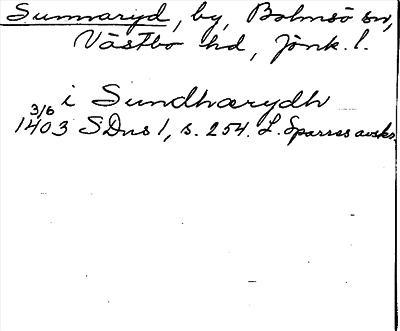 Sunnaryd, by, Bolmsö sn,
Västbo hd, Jönk. l.
i Sundhærydh
3/6
1403 SDns 1, s. 254. L. Sparres avskr.